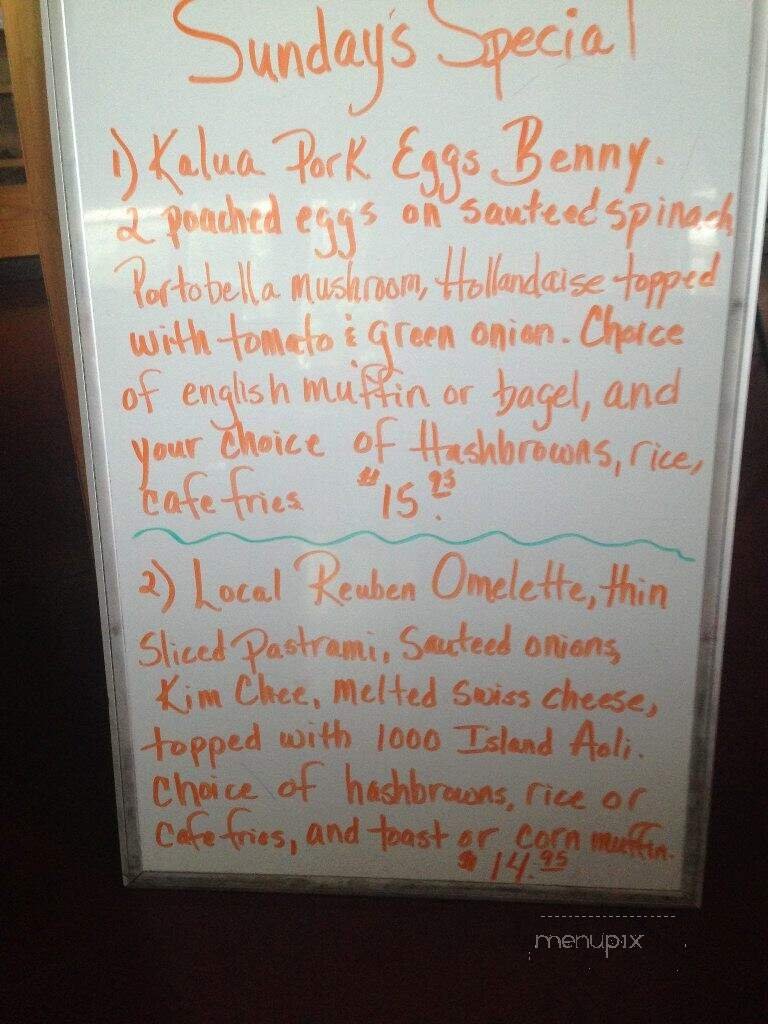 Sunday's Special
1) Kalua Pork Eggs Benny.
2 poached eggs on sauteed spinach
Portobella mushroom, Hollandaise topped
with tomato & green onion. Choice
of english muffin or bagel, and
your choice of Hashbrowns, rice,
cafe fries $15.95
2) Local Reuben Omelette, thin
Sliced Pastrami, Sauteed onions,
Kim Chee, melted Swiss cheese,
topped with 1000 Island Aoli.
Choice of hashbrowns, rice or
Cafe fries, and toast or corn muffin.
$14.95
menupix